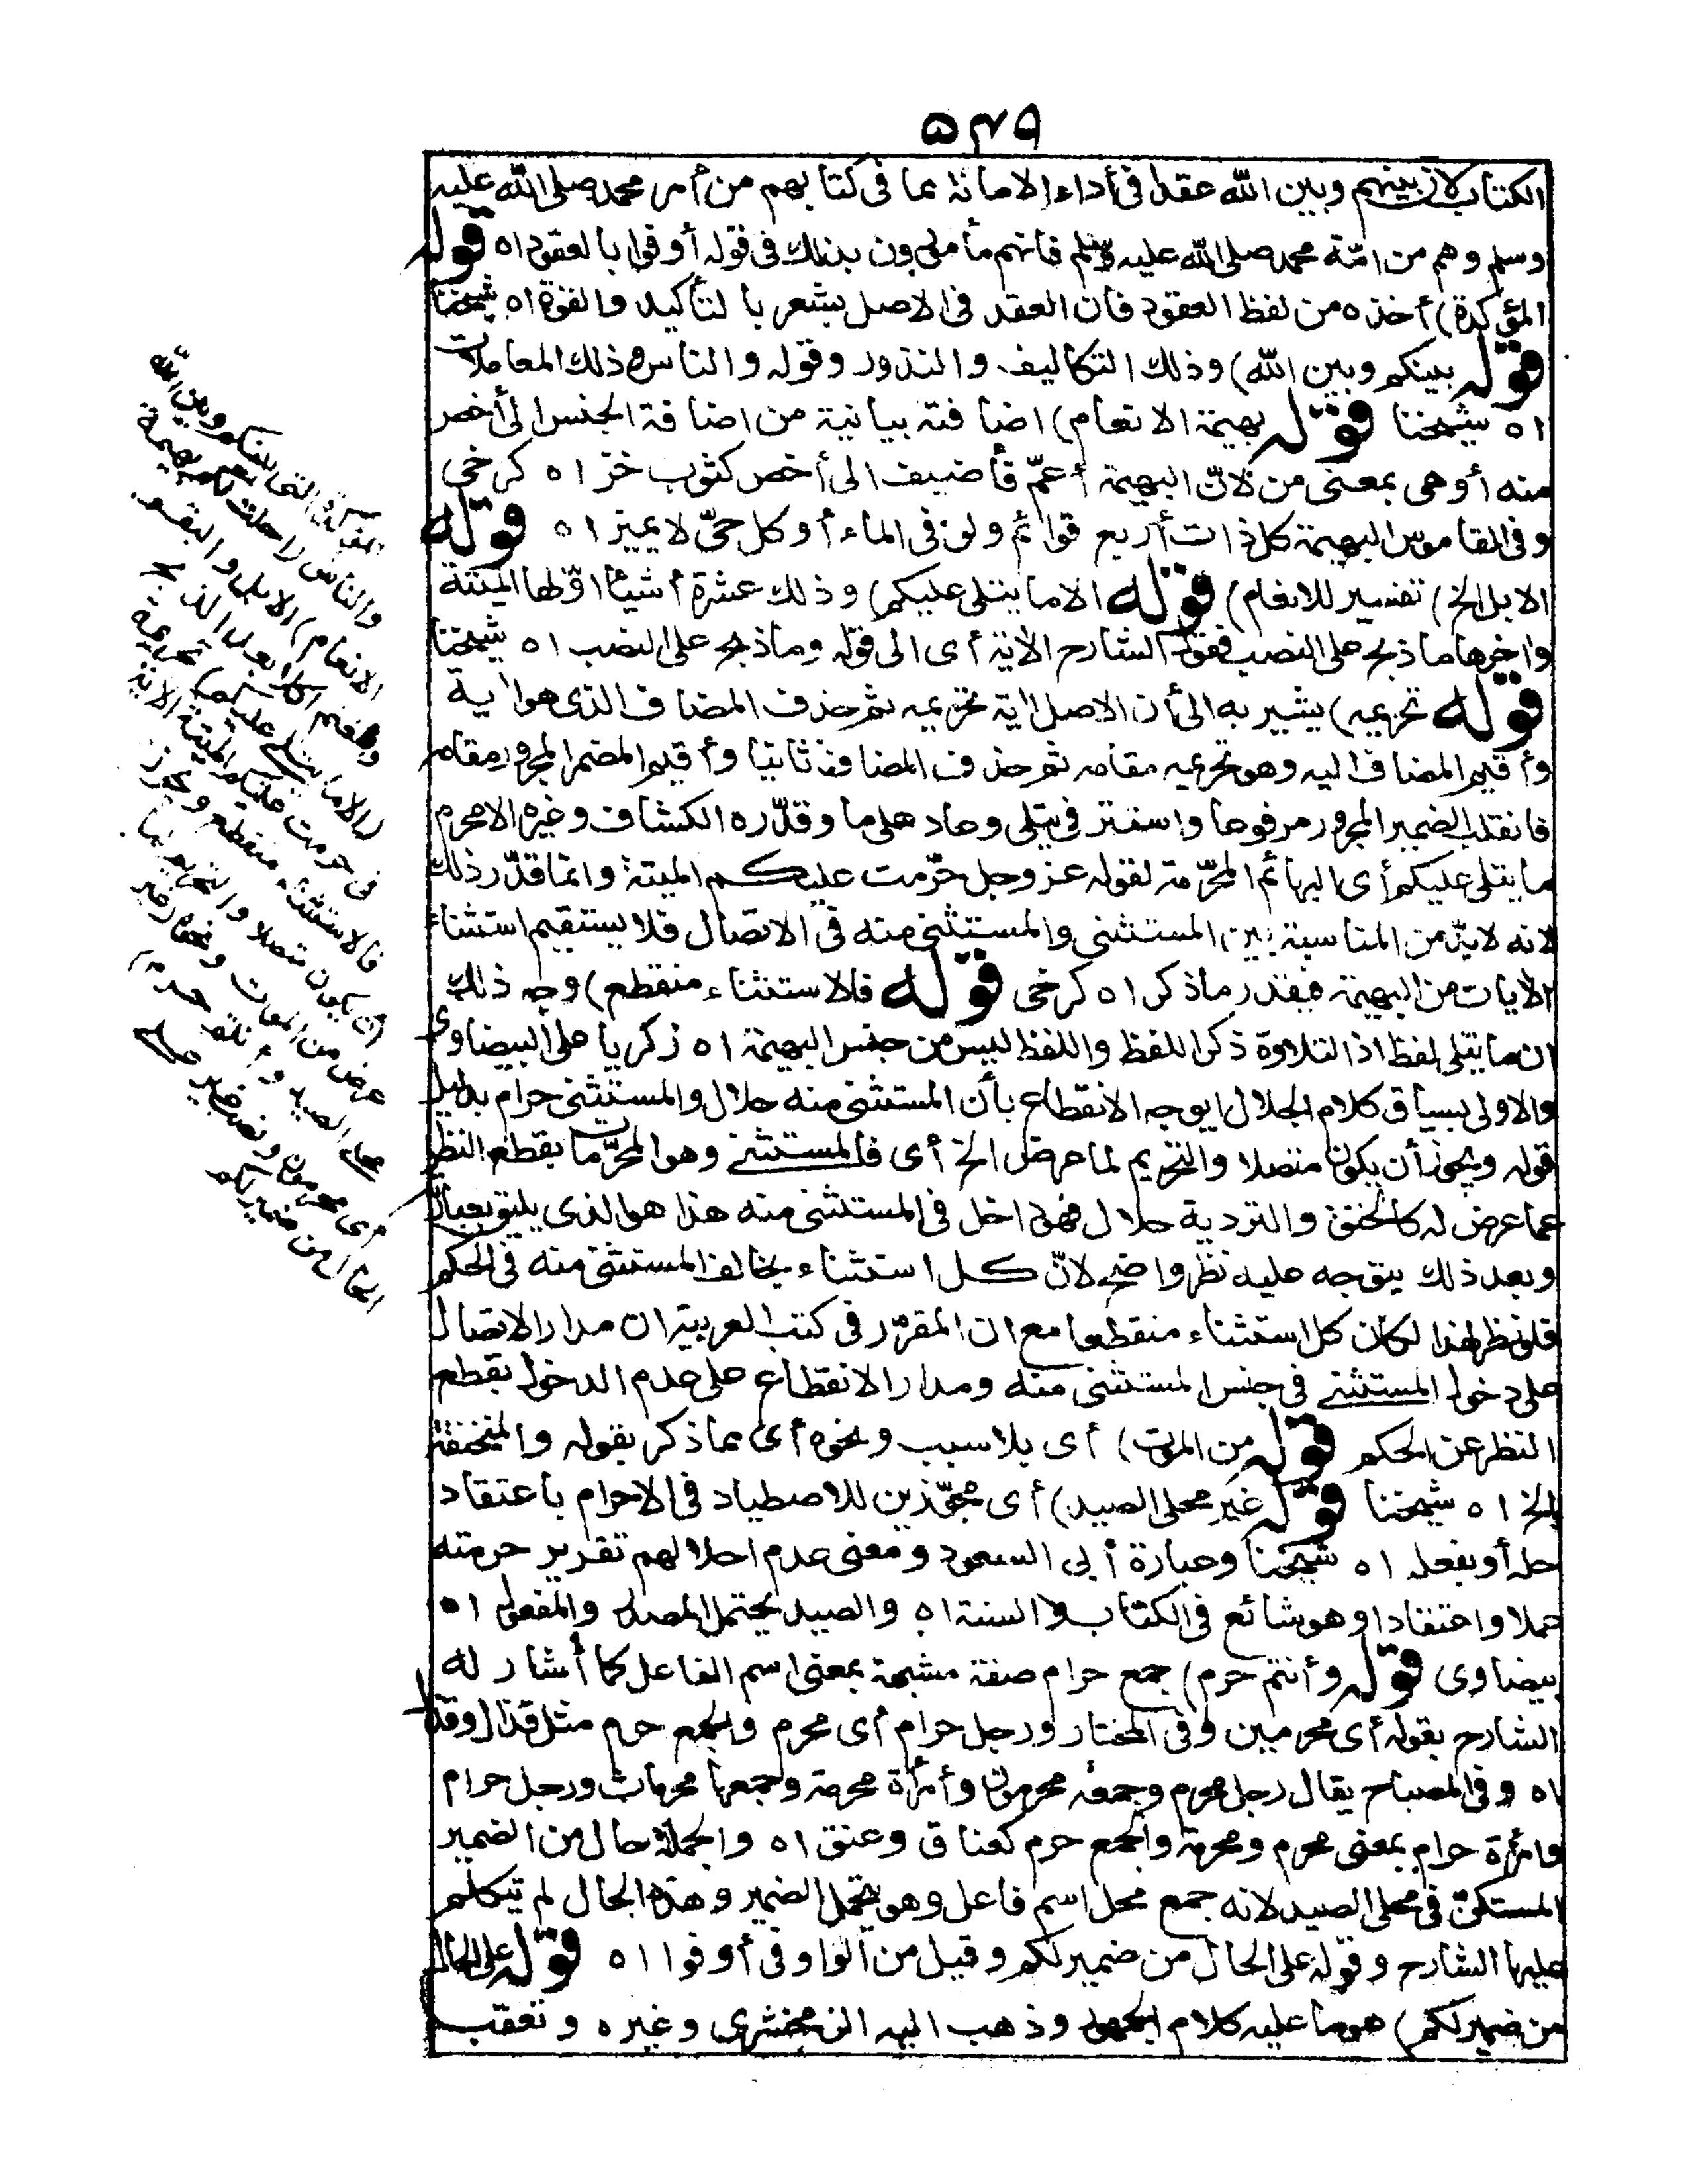 ٥٤٩
الكتاب لان بينهم وبين الله عقدا فى أداء الامانة بما فى كتابهم من أمر محمد صلى الله عليه
وسلم وهم من امّة محمد صلى الله عليه وسلم فانهم مأمورون بذلك فى قوله أوفوا بالعقود اه قوله
المؤكدة) أخذه من لفظ العقود فان العقد فى الاصل يشعر بالتأكيد والقوة اه شيخنا
قوله بينكم وبين الله) وذلك التكاليف والنذور وقوله والناس وذلك المعاملات
اه شيخنا قوله بهيمة الانعام) اضافته بيانية من اضافة الجنس الى أخص
منه أوهى بمعنى من لانّ البهيمة أعمّ فأضيف الى أخص كثوب خز اه كرخى
وفى القاموس البهيمة كل ذات أربع قوائم ولو فى الماء أوكل حىّ لا يميز اه قوله
الابل الخ) تفسير للانعام) قوله الا ما يتلى عليكم) وذلك عشرة أشياء اوّلها الميتة
واخرها ما ذبح على النصب فقول الشارح الآية أى الى قوله وما ذبح على النصب اه شيخنا
قوله تحريمه) يشير به الى أن الاصل اية تحريمه ثم حذف المضاف الذى هو اية
وأقيم المضاف اليه وهو تحريمه مقامه ثم حذف المضاف ثانيا وأقيم المضمر المجرور مقامه
فانقلب الضمير المجرور مرفوعا واستتر فى يتلى وعاد على ما وقدّره الكشاف وغيره الا محرم
ما يتلى عليكم أى البهائم المحرّمة لقوله عز وجل حرّمت عليكم الميتة وانما قدّر ذلك
لانه لابدّ من المناسبة بين المستثنى والمستثنى منه فى الاتصال فلا يستقيم استثناء
الآيات من البهيمة فيقدر ما ذكر اه كرخى قوله فالاستثناء منقطع) وجه ذلك
ان ما يتلى لفظ اذ التلاوة ذكر اللفظ واللفظ ليس من جنس البهيمة اه زكريا على البيضاوى
والاولى بسياق كلام الجلال ان يوجه الانقطاع بأن المستثنى منه حلال والمستثنى حرام بدليل
قوله ويجوز أن يكون متصلا والتحريم لما عرض الخ أى فالمستثنى وهو المحرّمات بقطع النظر
عما عرض له كالخنق والتردية حلال فهو داخل فى المستثنى منه هذا هو الذى يليق بعبارته
وبعد ذلك يتوجه عليه نظر واضح لانّ كل استثناء يخالف المستثنى منه فى الحكم
فلو نظر لهذا لكان كل استثناء منقطعا مع ان المقرّر فى كتب العربية ان مدار الاتصال
على دخول المستثنى فى جنس المستثنى منه ومدار الانقطاع على عدم الدخول بقطع
النظر عن الحكم قوله من الموت) أى بلا سبب ونحوه أى مما ذكر بقوله والمنخنقة
الخ اه شيخنا قوله غير محلى الصيد) أى مجوّزين للاصطياد فى الاحرام باعتقاد
حله أو بفعله اه شيخنا وعبارة أبى السعود ومعنى عدم احلالهم تقرير حرمته
عملا واعتقادا وهو شائع فى الكتاب والسنة اه والصيد يحتمل المصدر والمفعول اه
بيضاوى قوله وأنتم حرم) جمع حرام صفة مشبهة بمعنى اسم الفاعل كما أشار له
الشارح بقوله أى محرمين وفى المختار ورجل حرام أى محرم والجمع حرم مثل قذال وقذل
اه وفى المصباح يقال رجل محرم وجمعه محرمون وأمرأة محرمة وجمعها محرمات ورجل حرام
وامرأة حرام بمعنى محرم ومحرمة والجمع حرم كعناق وعنق اه والجملة حال من الضمير
المستكنّ فى محلى الصيد لانه جمع محل اسم فاعل وهو يتحمل الضمير وهذه الحال لم يتكلم
عليها الشارح وقوله على الحال من ضمير لكم وقيل من الواو فى أوفوا اه قوله على الحال
من ضمير لكم) هو ما عليه كلام الجمهور وذهب اليه الزمخشرى وغيره وتعقب
المؤكدة التى بينكم وبين الله
والناس (احلت لكم بهيمة
الانعام) الابل والبقر
والغنم اكلا بعد الذبح
(الا ما يتلى عليكم) تحريمه
فى حرمت عليكم الميتة الآية
فالاستثناء منقطع ويجوز
أن يكون متصلا والتحريم لما
عرض من الموت ونحوه (غير
محلى الصيد وانتم حرم)
أى محرمون ونصب غير على
الحال من ضمير لكم